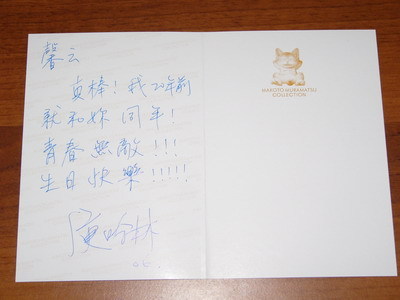 馨云
真棒！我20年前
就和妳同年！
青春無敵！！！
生日快樂！！！！！
06.
MAKOTO MURAMATSU
COLLECTION